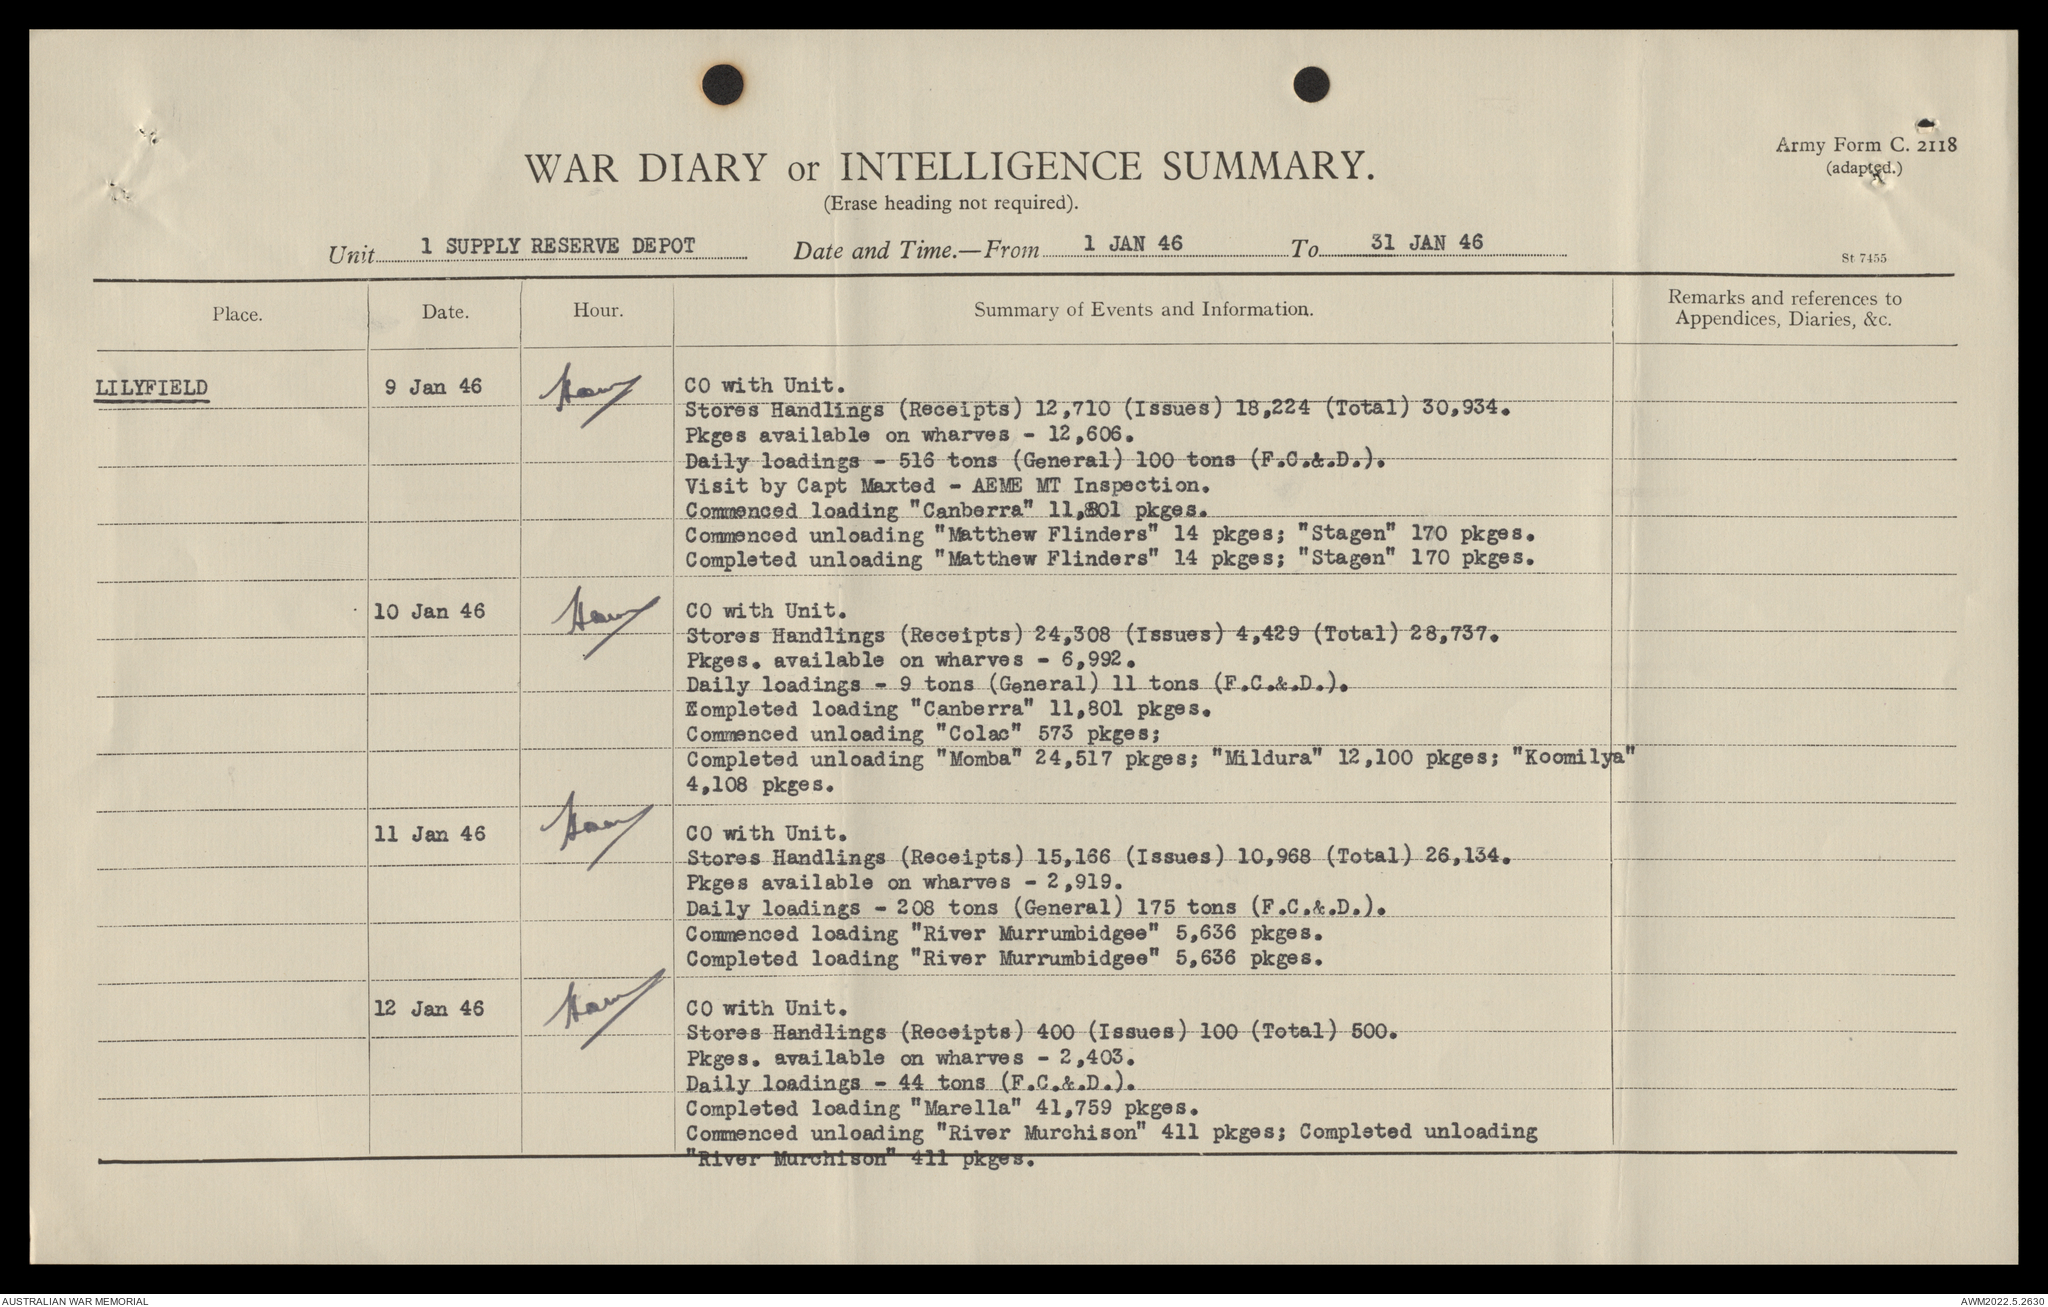 Army Form C. 2118
(adapted.)
WAR DIARY or INTELLIGENCE SUMMARY.
(Erase heading not required).
Unit 1 SUPPLY RESERVE DEPOT Date and Time.—From 1 JAN 46 To 31 JAN 46
St 7455
Place. Date. Hour. Summary of Events and Information. Remarks and references to
Appendices, Diaries, &c.
LILYFIELD 9 Jan 46 CO with Unit.
Stores Handlings (Receipts) 12,710 (Issues) 18,224 (Total) 30,934.
Pkges available on wharves - 12,606.
Daily loadings - 516 tons (General) 100 tons (F.C.&.D.).
Visit by Capt Maxted - AEME MT Inspection.
Commenced loading "Canberra" 11,801 pkges.
Commenced unloading "Matthew Flinders" 14 pkges; "Stagen" 170 pkges.
Completed unloading "Matthew Flinders" 14 pkges; "Stagen" 170 pkges.
10 Jan 46 CO with Unit.
Stores Handlings (Receipts) 24,308 (Issues) 4,429 (Total) 28,737.
Pkges. available on wharves - 6,992.
Daily loadings - 9 tons (General) 11 tons (F.C.&.D.).
Completed loading "Canberra" 11,801 pkges.
Commenced unloading "Colac" 573 pkges;
Completed unloading "Momba" 24,517 pkges; "Mildura" 12,100 pkges; "Koomilya"
4,108 pkges.
11 Jan 46 CO with Unit.
Stores Handlings (Receipts) 15,166 (Issues) 10,968 (Total) 26,134.
Pkges available on wharves - 2,919.
Daily loadings - 208 tons (General) 175 tons (F.C.&.D.).
Commenced loading "River Murrumbidgee" 5,636 pkges.
Completed loading "River Murrumbidgee" 5,636 pkges.
12 Jan 46 CO with Unit.
Stores Handlings (Receipts) 400 (Issues) 100 (Total) 500.
Pkges. available on wharves - 2,403.
Daily loadings - 44 tons (F.C.&.D.).
Completed loading "Marella" 41,759 pkges.
Commenced unloading "River Murchison" 411 pkges; Completed unloading
"River Murchison" 411 pkges.
AUSTRALIAN WAR MEMORIAL AWM2022.5.2630